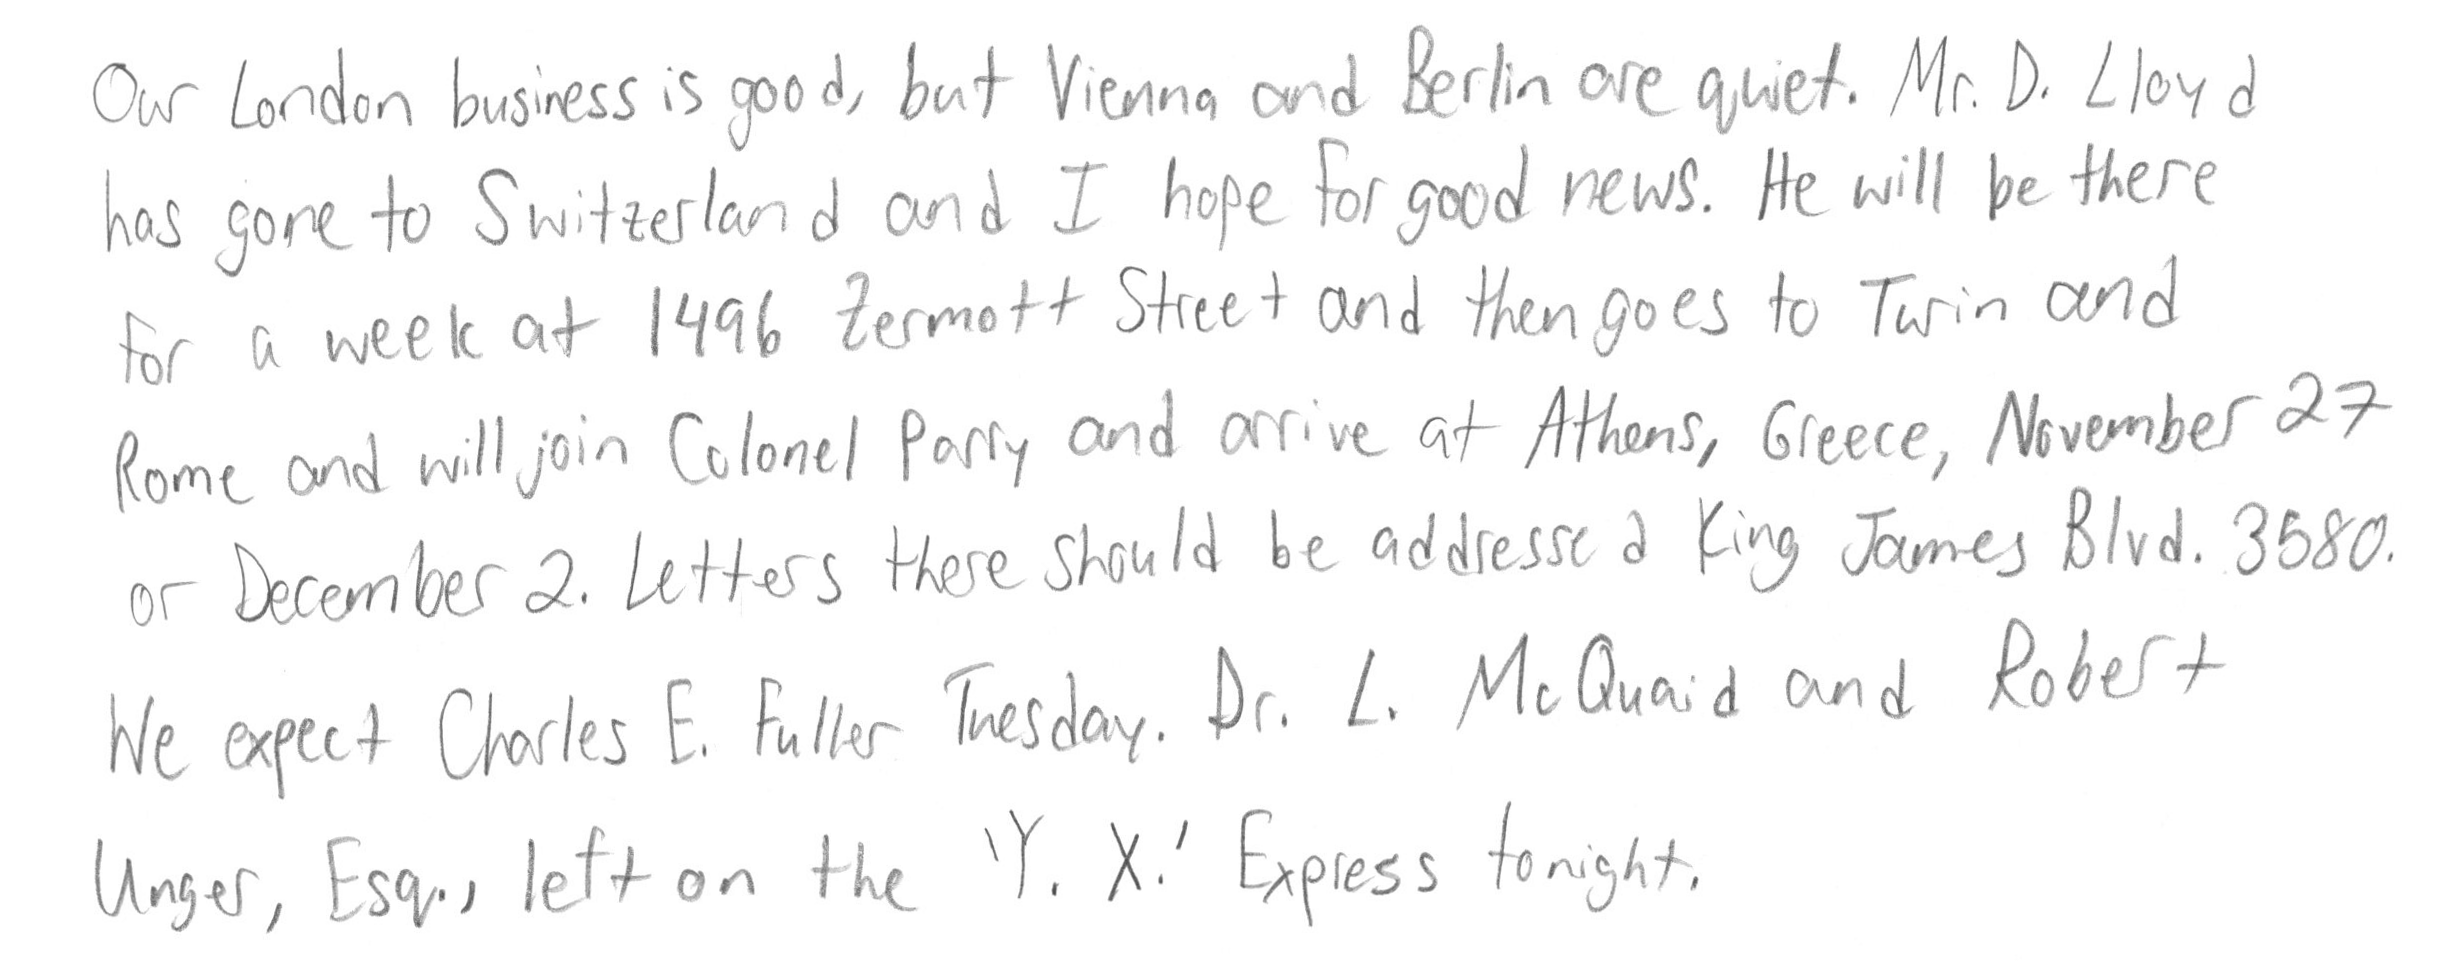 Our London business is good, but Vienna and Berlin are quiet. Mr. D. Lloyd
has gone to Switzerland and I hope for good news. He will be there
for a week at 1496 Zermott Street and then goes to Turin and
Rome and will join Colonel Parry and arrive at Athens, Greece, November 27
or December 2. Letters there should be addressed King James Blvd. 3580.
We expect Charles E. Fuller Tuesday. Dr. L. McQuaid and Robert
Unger, Esq., left on the 'Y. X.' Express tonight.